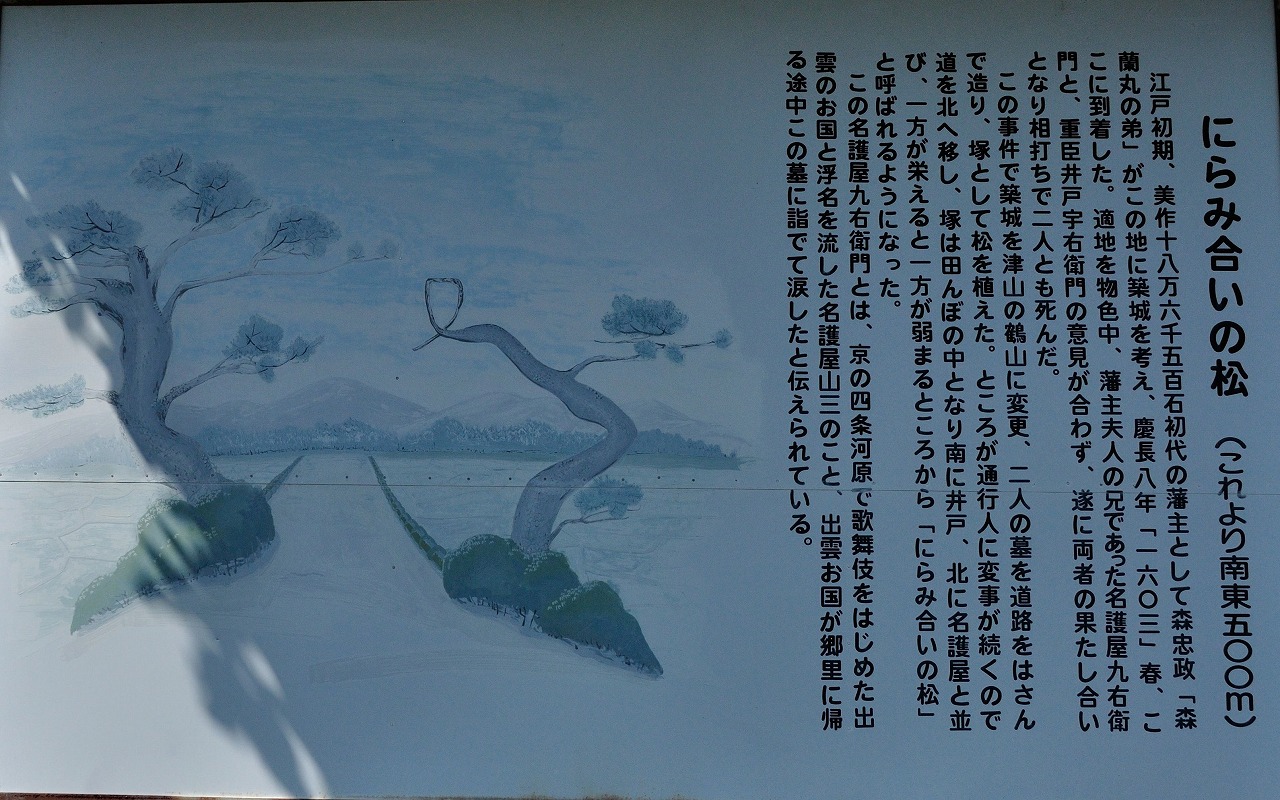 にらみ合いの松　（これより南東五〇〇ｍ）
江戸初期、美作十八万六千五百石初代の藩主として森忠政「森
蘭丸の弟」がこの地に築城を考え、慶長八年「一六〇三」春、こ
こに到着した。適地を物色中、藩主夫人の兄であった名護屋九右衛
門と、重臣井戸宇右衛門の意見が合わず、遂に両者の果たし合い
となり相打ちで二人とも死んだ。
この事件で築城を津山の鶴山に変更、二人の墓を道路をはさん
で造り、塚として松を植えた。ところが通行人に変事が続くので
道を北へ移し、塚は田んぼの中となり南に井戸、北に名護屋と並
び、一方が栄えると一方が弱まるところから「にらみ合いの松」
と呼ばれるようになった。
この名護屋九右衛門とは、京の四条河原で歌舞伎をはじめた出
雲のお国と浮名を流した名護屋山三のこと、出雲お国が郷里に帰
る途中この墓に詣でて涙したと伝えられている。